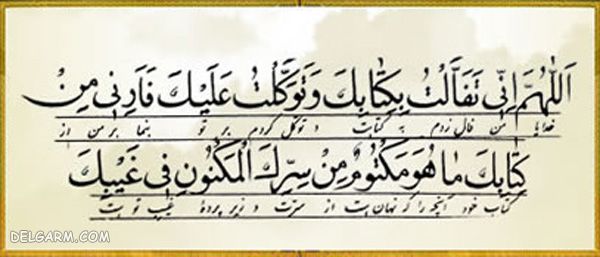 اَللّٰهُمَّ اِنّی تَفَأَّلْتُ بِکِتٰابِكَ وَ تَوَکَّلْتُ عَلَیْكَ فَاَرِنی مِنْ
خدایا من فال زدم به کتابت و توکل کردم بر تو بنما بر من از
کِتٰابِكَ مٰا هُوَ مَکْتُومٌ مِنْ سِرِّكَ الْمَکْنُونِ فی غَیْبِكَ
کتاب خود آنچه را که نهان است از سرت و زیر پردهٔ غیب تو است
DELGARM.COM